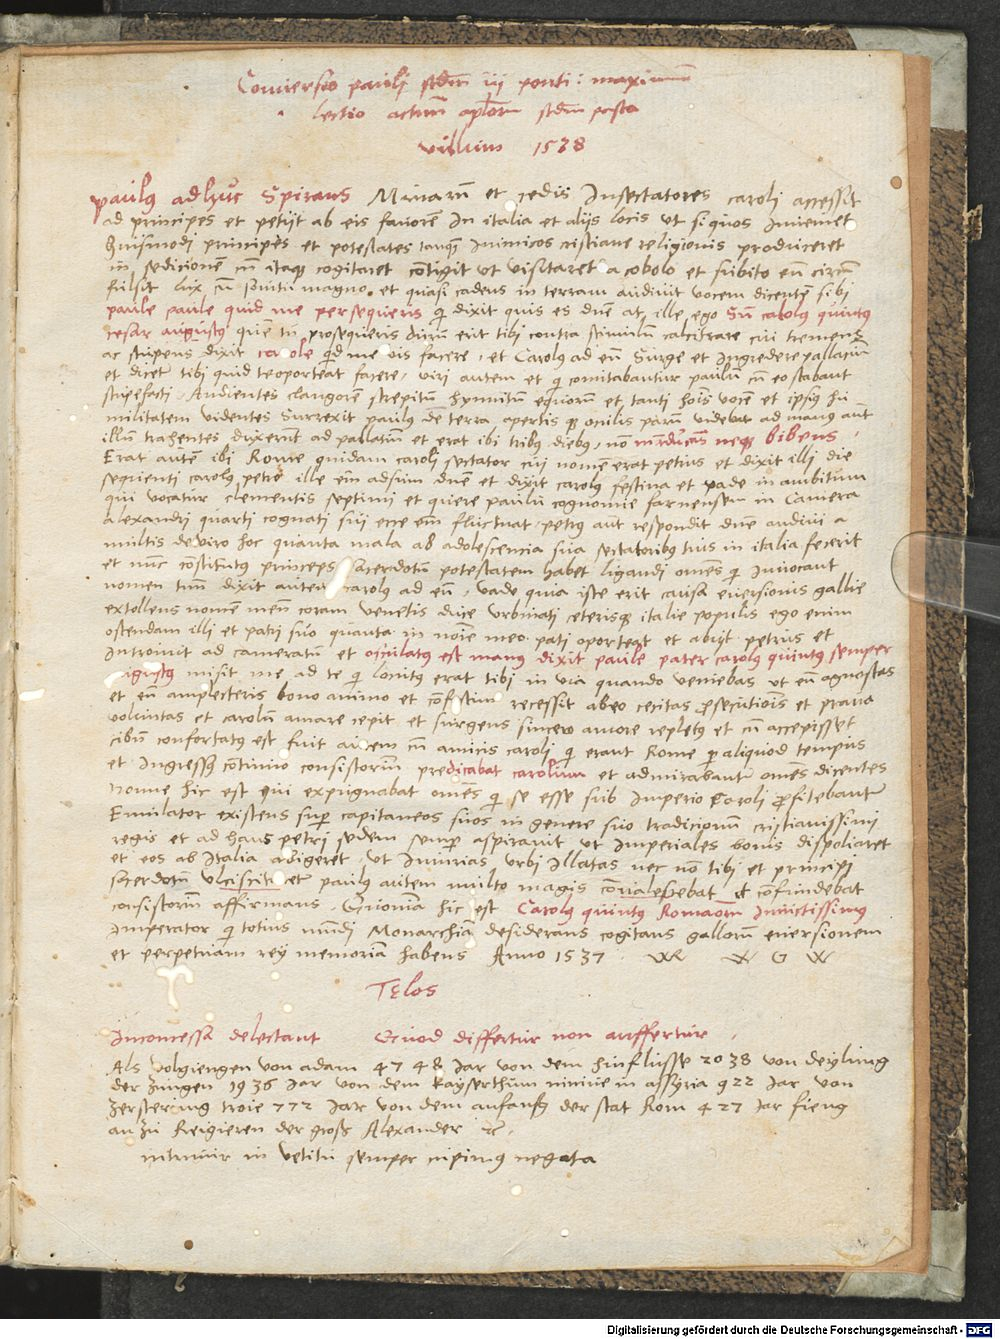 Conuersio pauli scd'm iij ponti: maximum
lectio actuu' apl'orum scd'm pasta
villum 1538
paulus adhuc Spirans Minarum et cedis Insectatores caroli accessit
ad principes et petijt ab eis fauorem In italia et alijs locis ut si quos Inueniret
huiusmodi principes et potestates tanq' Inimicos cristiane religionis produceret
in sedicionem cu' itaq' cogitaret contigit ut visitaret a cobolo et subito eu' circu'
fulsit lux cu' sonitu magno et quasi cadens in terram audiuit vocem dicente' sibi
paule paule quid me persequeris q' dixit quis es dne at ille ego Su' carolus quintus
cesar augustus que' tu prosequeris durum erit tibi contra stimulum calcitrare cui tremens
ac stupens dixit carole quid me vis facere, et Carolus ad eu' Surge et Ingredere pallacium
et dicet tibi quid te oporteat facere, viri autem et q' comitabantur paulu' cu' eo stabant
stupefacti, Audientes clangorem strepitum hynnitum equorum et tanti hois vocem et ipsius hu
militatem videntes Surrexit paulus de terra apertis q' oculis parum videbat ad manus aut
illum trahentes duxerunt ad pallatium et erat ibi tribus diebus, non manducans neq' bibens,
Erat autem ibi Rome quidam caroli sectator cui nomen erat petrus et dixit illi die
sequenti carolus petre ille em adsum dne et dixit carolus festina et vade in ambitum
qui vocatur clementis septimi et quere paulu' cognomine farnensem in Camera
alexandri quarti cognati sui ecce em fluctuat, petrus aut respondit dne audiui a
multis de viro hoc quanta mala ab adolescencia sua sectatoribus tuis in italia fecerit
et nunc constitutus princeps sacerdotum potestatem habet ligandi omnes q' Inuocant
nomen tuum dixit autem carolus ad eu', vade quia iste erit causa euersionis gallie
extollens nomen meum coram venetis duce vrbinati ceterisq' italie populis ego enim
ostendam illi et patri suo quanta in noie meo pati oporteat et abijt petrus et
Introiuit ad cameratum et osculatus est manus dixit paule pater carolus quintus semper
agustus misit me ad te q' locutus erat tibi in via quando veniebas ut eu' agnoscas
et eu' amplecteris bono animo et confestim recessit ab eo cecitas prosecutionis et praua
voluntas et carolum amare cepit et surgens sincero amore repletus et cu' accepisset
cibum confortatus est fuit autem cu' amicis caroli q' erant Rome p aliquod tempus
et Ingressus continuo consistorium predicabat carolum et admirabantur omnes dicentes
Nonne hic est qui expugnabat omnes q' se esse sub Imperio Caroli profitebantur
Emulator existens sup' capitaneos suos in genere suo tradicionum cristianissimi
regis et ad hanc petri sedem semp' aspirauit ut Imperiales bonis dispoliaret
et eos ab Italia adigeret, ut Iniurias vrbi Illatas nec non tibi et principi
sacerdotum vlciscitceter paulus autem multo magis conualescebat et confundebat
consistorium affirmans, Quonia' hic est Carolus quintus Romaorum Inuictissimus
Imperator q' totius mundi Monarchia' desiderans cogitans gallorum euersionem
et perpetuam rey memoriam habens Anno 1537. WR W G W
Telos
Inconcessa delectant Quod differtur non auffertur,
Als volgiengen von adam 4748 Jar von dem sinflusse 2038 von deyling
der zungen 1936 Jar von dem kayserthum niniue in assyria 922 Jar von
zersterung troie 772 Jar von dem anfang der stat Rom 427 Jar fieng
an zu Reigieren der groß Alexander etc.
nitimur in vetitu' semper cupimus negata
Digitalisierung gefördert durch die Deutsche Forschungsgemeinschaft - DFG